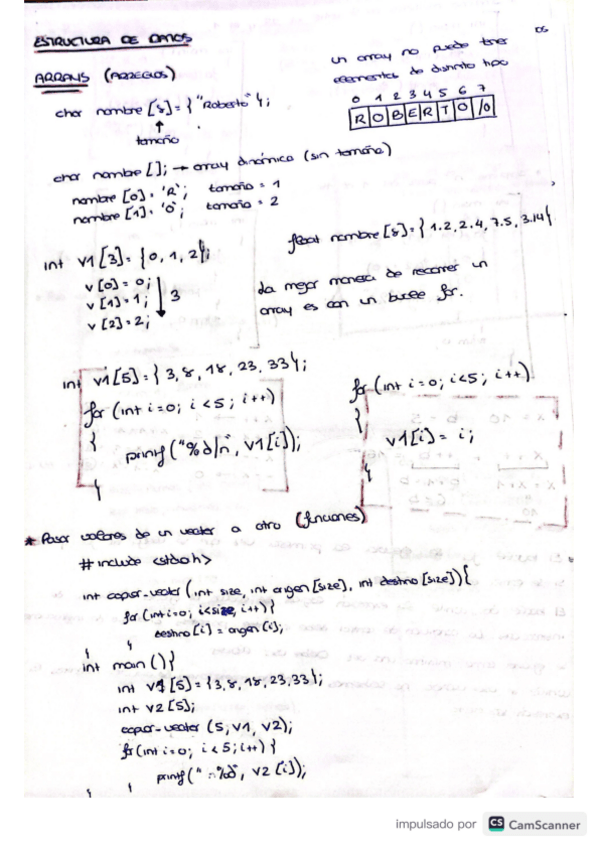 ESTRUCTURA DE DATOS
ARRAYS (ARREGLOS)
un array no puede tener
elementos de distinto tipo
char nombre [8] = {"Roberto"};
↑
tamaño
0 1 2 3 4 5 6 7
R O B E R T O /0
char nombre []; → array dinámico (sin tamaño)
nombre [0] = 'R'; tamaño = 1
nombre [1] = 'O'; tamaño = 2
float nombre [5] = { 1.2, 2.4, 7.5, 3.14}
int v1 [3] = {0, 1, 2};
v [0] = 0;
v [1] = 1; 3
v [2] = 2;
La mejor manera de recorrer un
array es con un bucle for.
int v1 [5] = { 3, 8, 18, 23, 33};
for (int i=0; i<5; i++)
{
printf ("%d\n", v1[i]);
}
for (int i=0; i<5; i++)
{
v1[i] = i;
}
* Pasar valores de un vector a otro (funciones)
# include <stdio.h>
int copiar-vector (int size, int origen [size], int destino [size]) {
for (int i=0; i<size, i++) {
destino [i] = origen [i];
}
}
int main () {
int v1 [5] = {3, 8, 18, 23, 33};
int v2 [5];
copiar-vector (5, v1, v2);
for (int i=0; i<5; i++) {
printf (" %d", v2 [i]);
}
}
impulsado por CS CamScanner